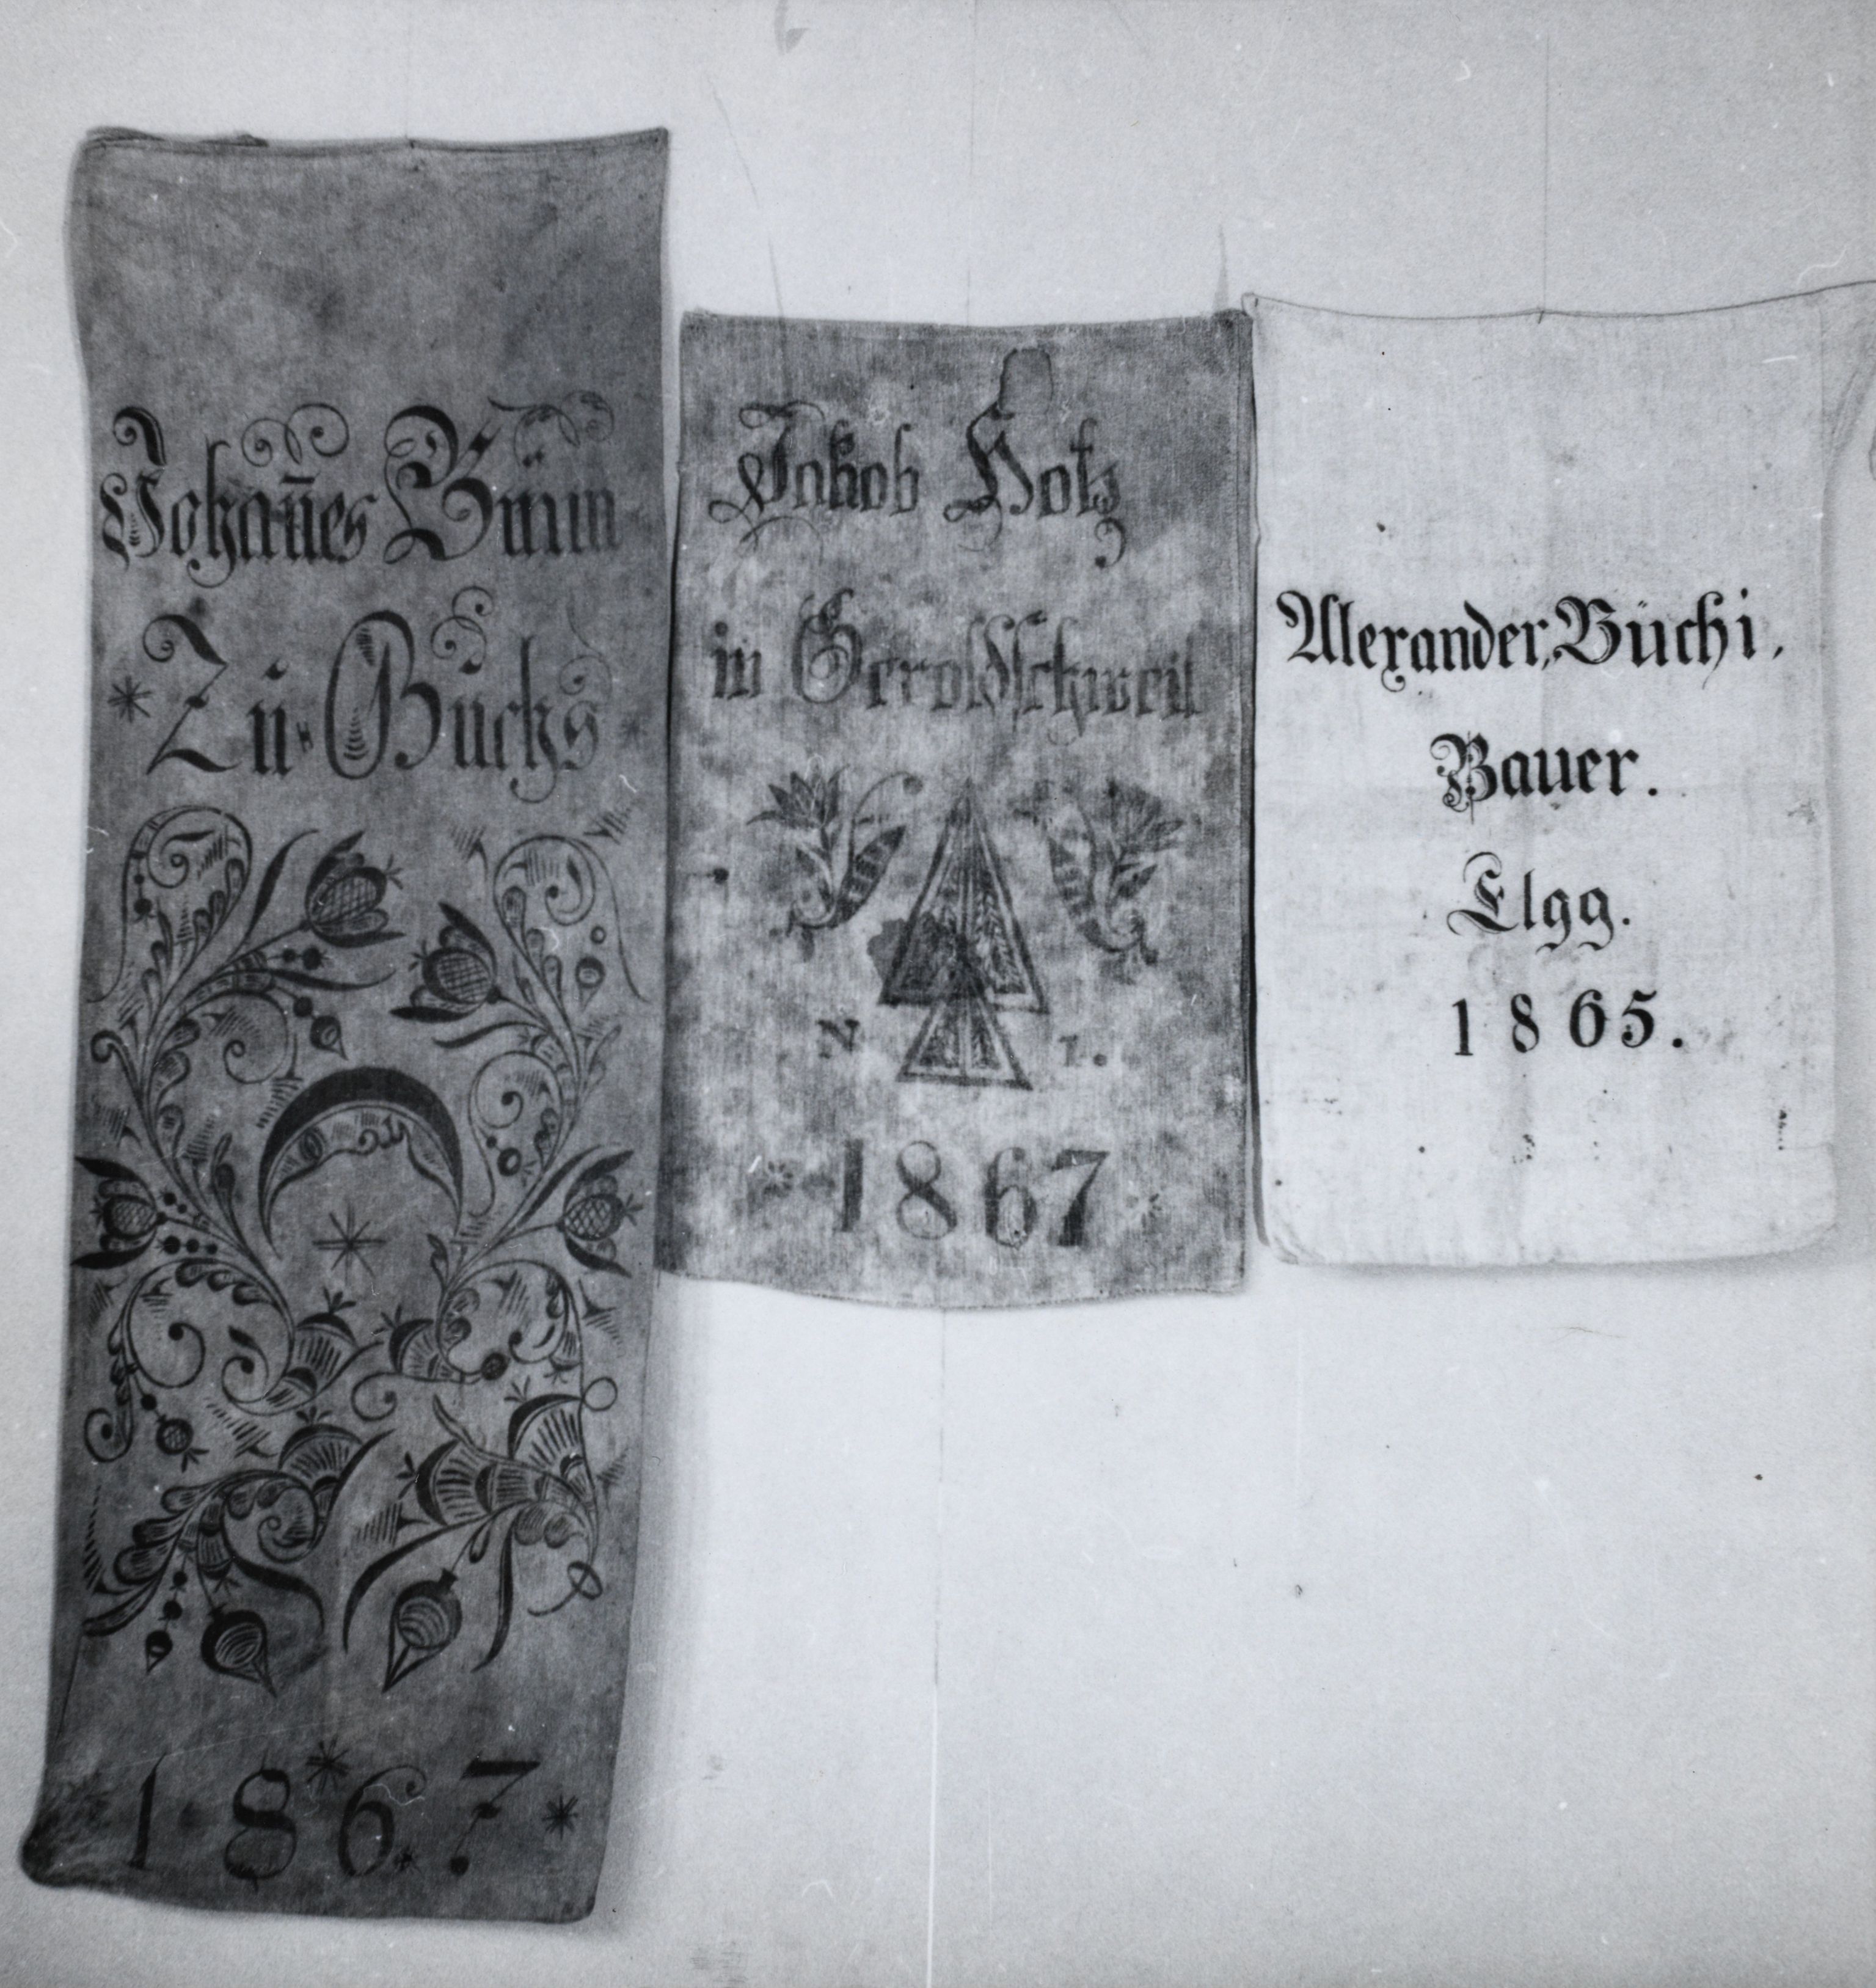 Johañes
Zu Buchs
1867
Jakob Hotz
in Geroldschweil
N 1.
1867
Alexander Büchi.
Bauer.
Elgg.
1865.